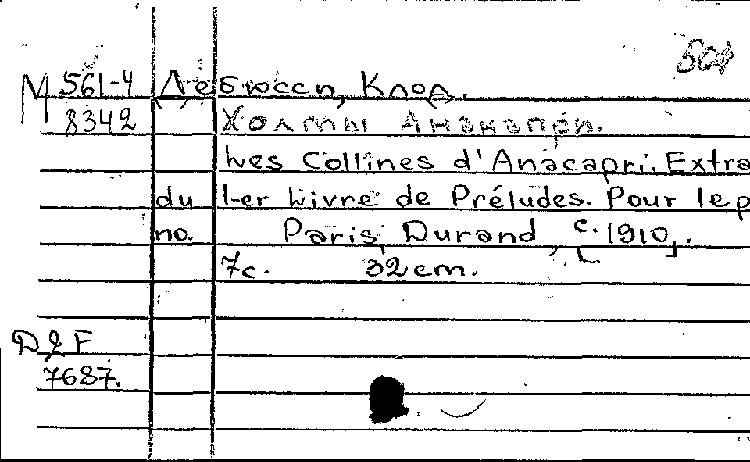 504
М 561-4 Дебюсси, Клод.
8342 Холмы Анакапри.
Les Collines d'Anacapri. Extra
du 1-er Livre de Préludes. Pour le p
no. Paris, Durand, [c. 1910].
7с. 32 cm.
D & F
7687.